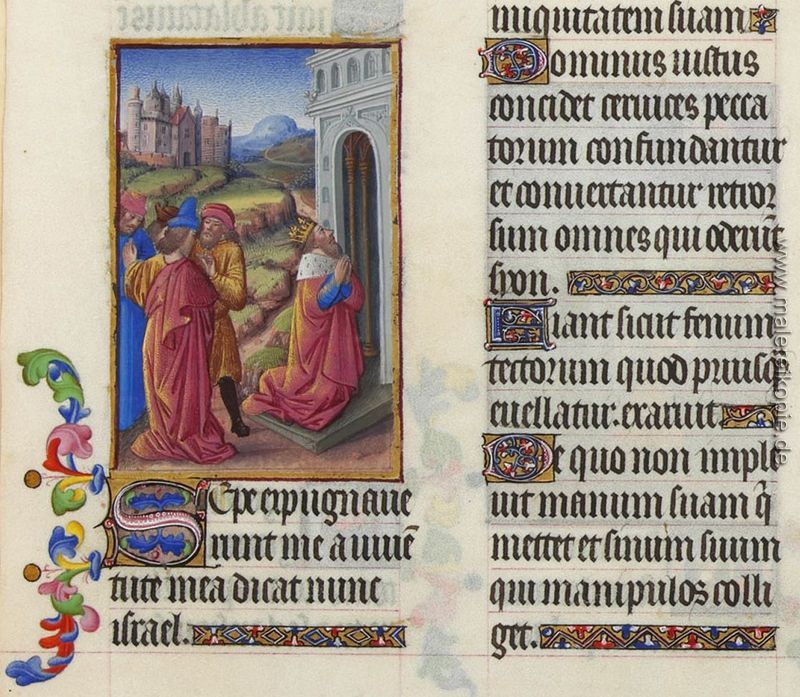 Sepe expugnaue
runt me a iuuē
tute mea dicat nunc
israel.
iniquitatem suam
Dominus iustus
concidet ceruices pecca
torum confundantur
et conuertantur retror
sum omnes qui oderūt
syon.
Fiant sicut fenum
tectorum quod priusq̄
euellatur. exaruit.
De quo non imple
uit manum suam q̄
mettet et sinum suum
qui manipulos colli
get.
www.malereikopie.de